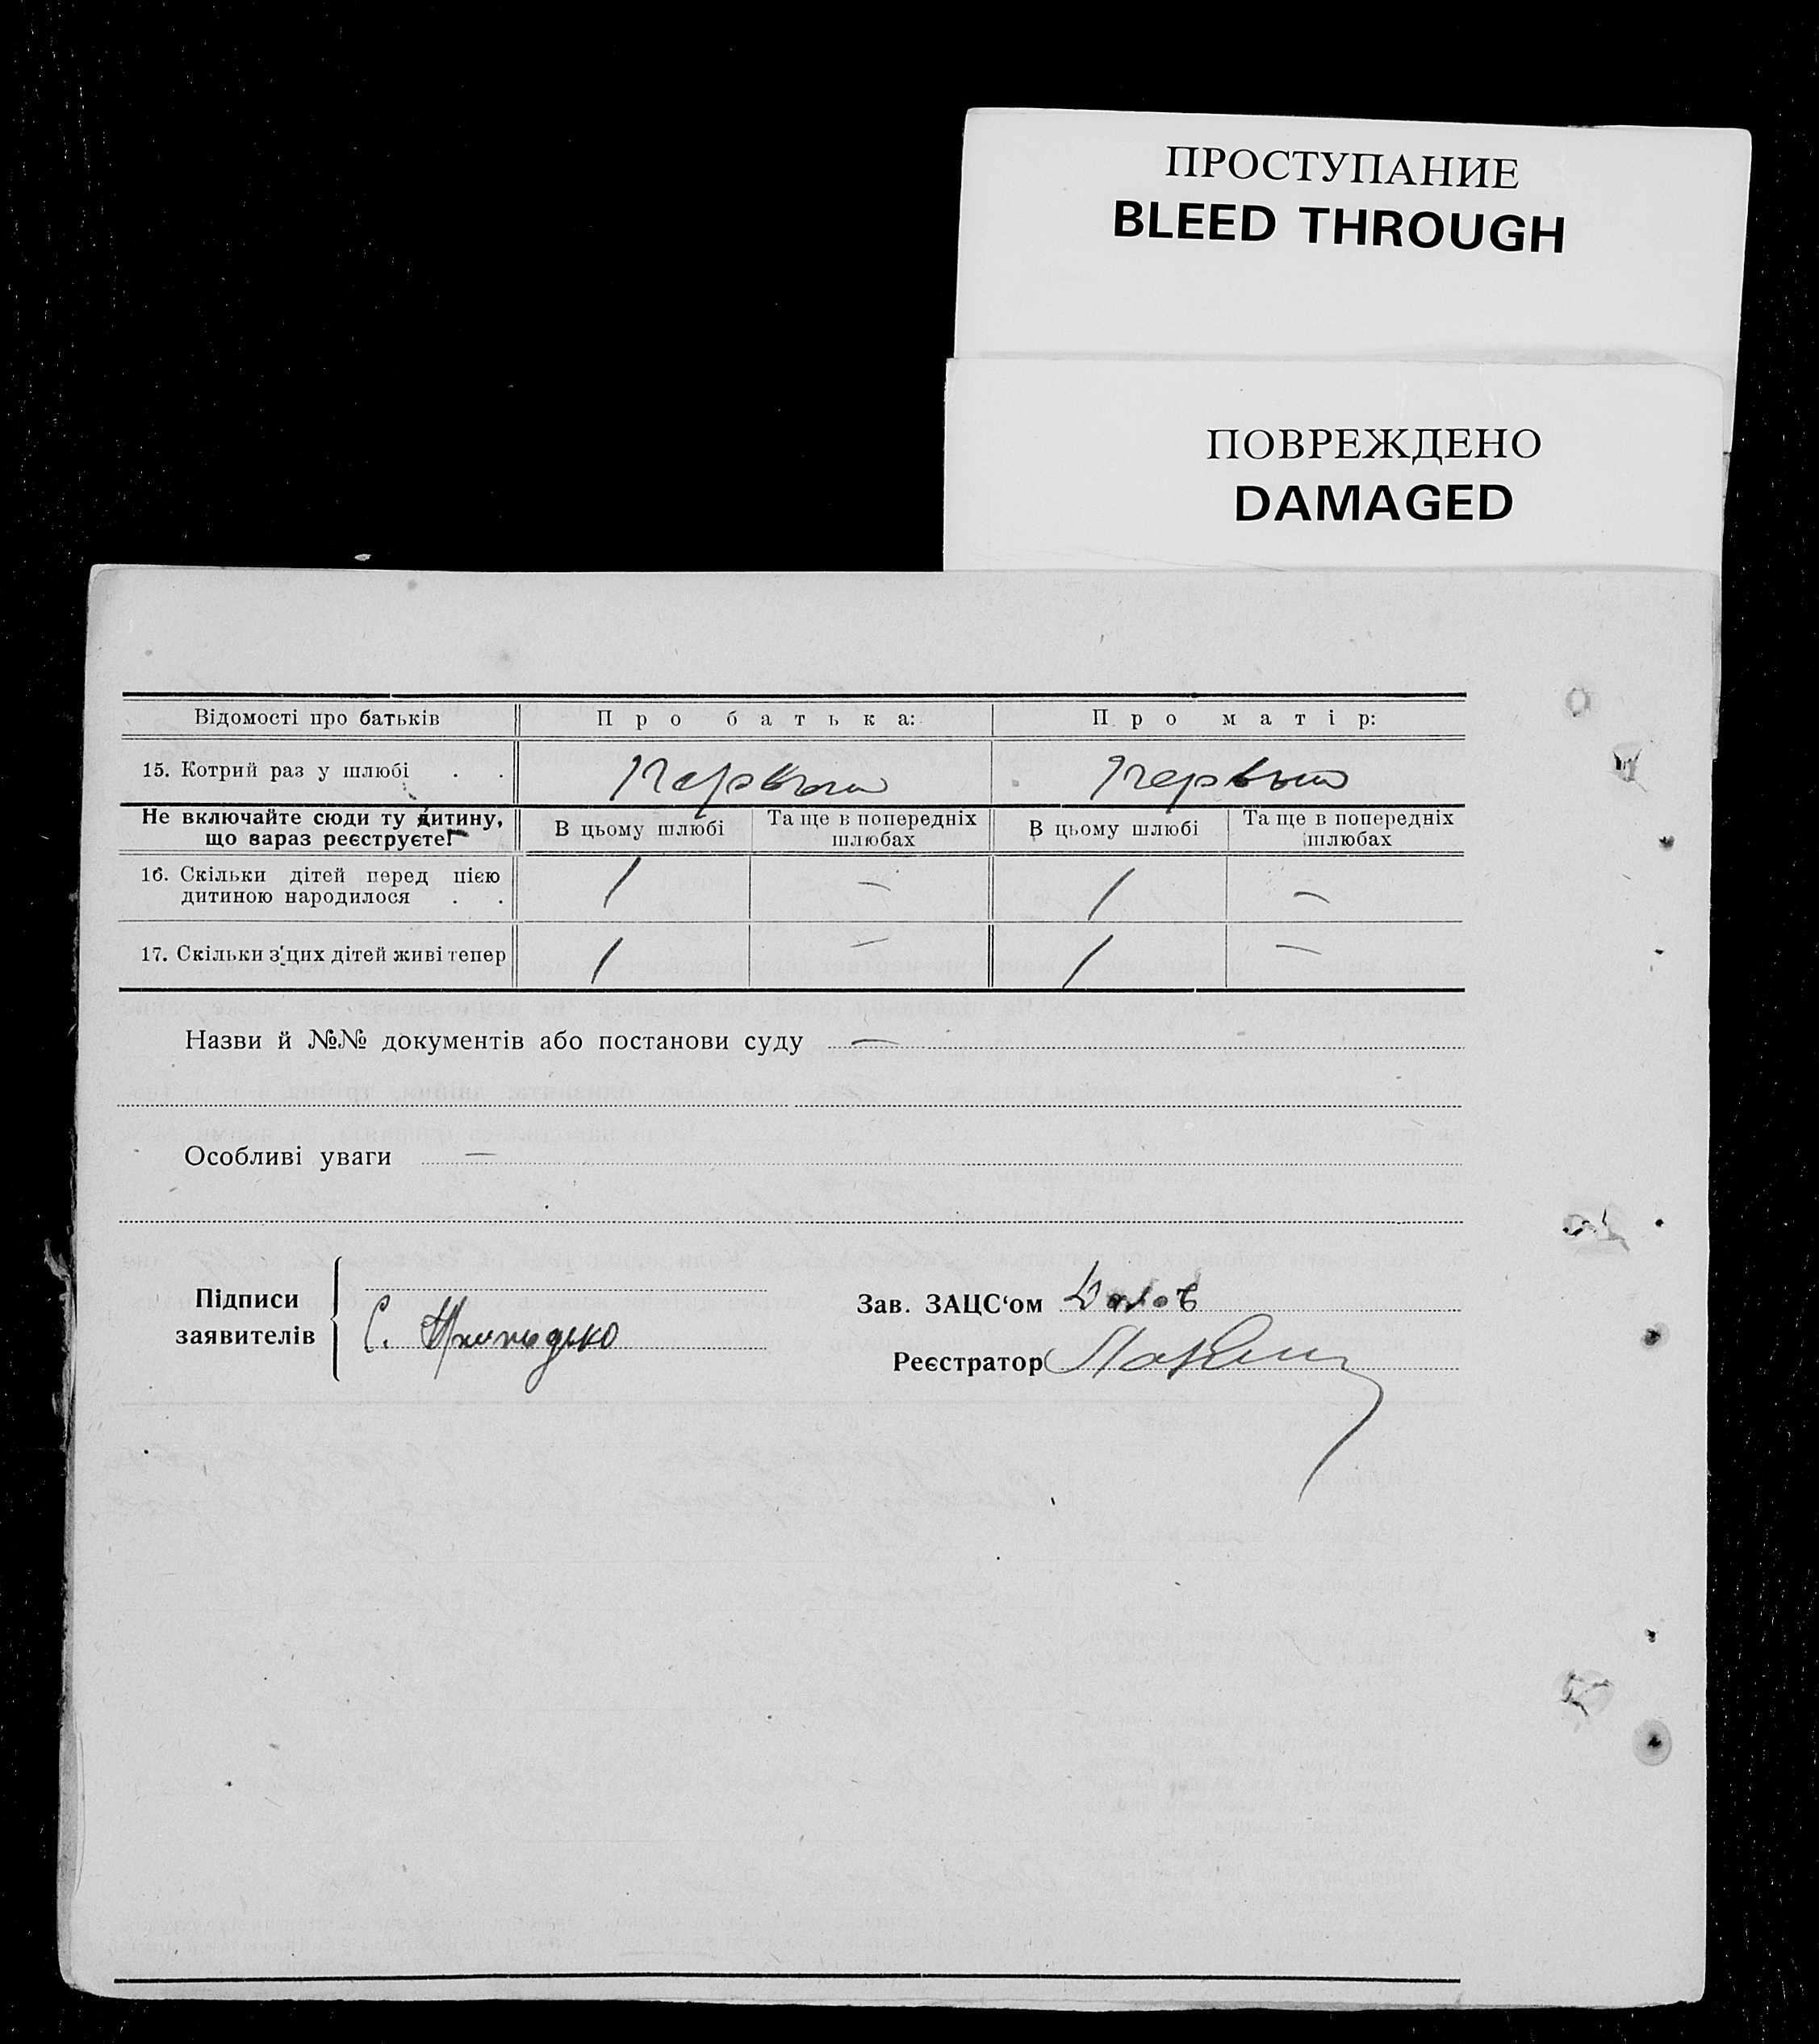 ПРОСТУПАНИЕ
BLEED THROUGH
ПОВРЕЖДЕНО
DAMAGED
Відомості про батьків Про батька: Про матір:
15. Котрий раз у шлюбі . . Первый Первый
Не включайте сюди ту дитину, що зараз реєструєте! В цьому шлюбі Та ще в попередніх шлюбах В цьому шлюбі Та ще в попередніх шлюбах
16. Скільки дітей перед цією дитиною народилося . . 1 — 1 —
17. Скільки з цих дітей живі тепер 1 — 1 —
Назви й №№ документів або постанови суду —
Особливі уваги —
Підписи заявителів
С.
Зав. ЗАЦС‘ом
Реєстратор